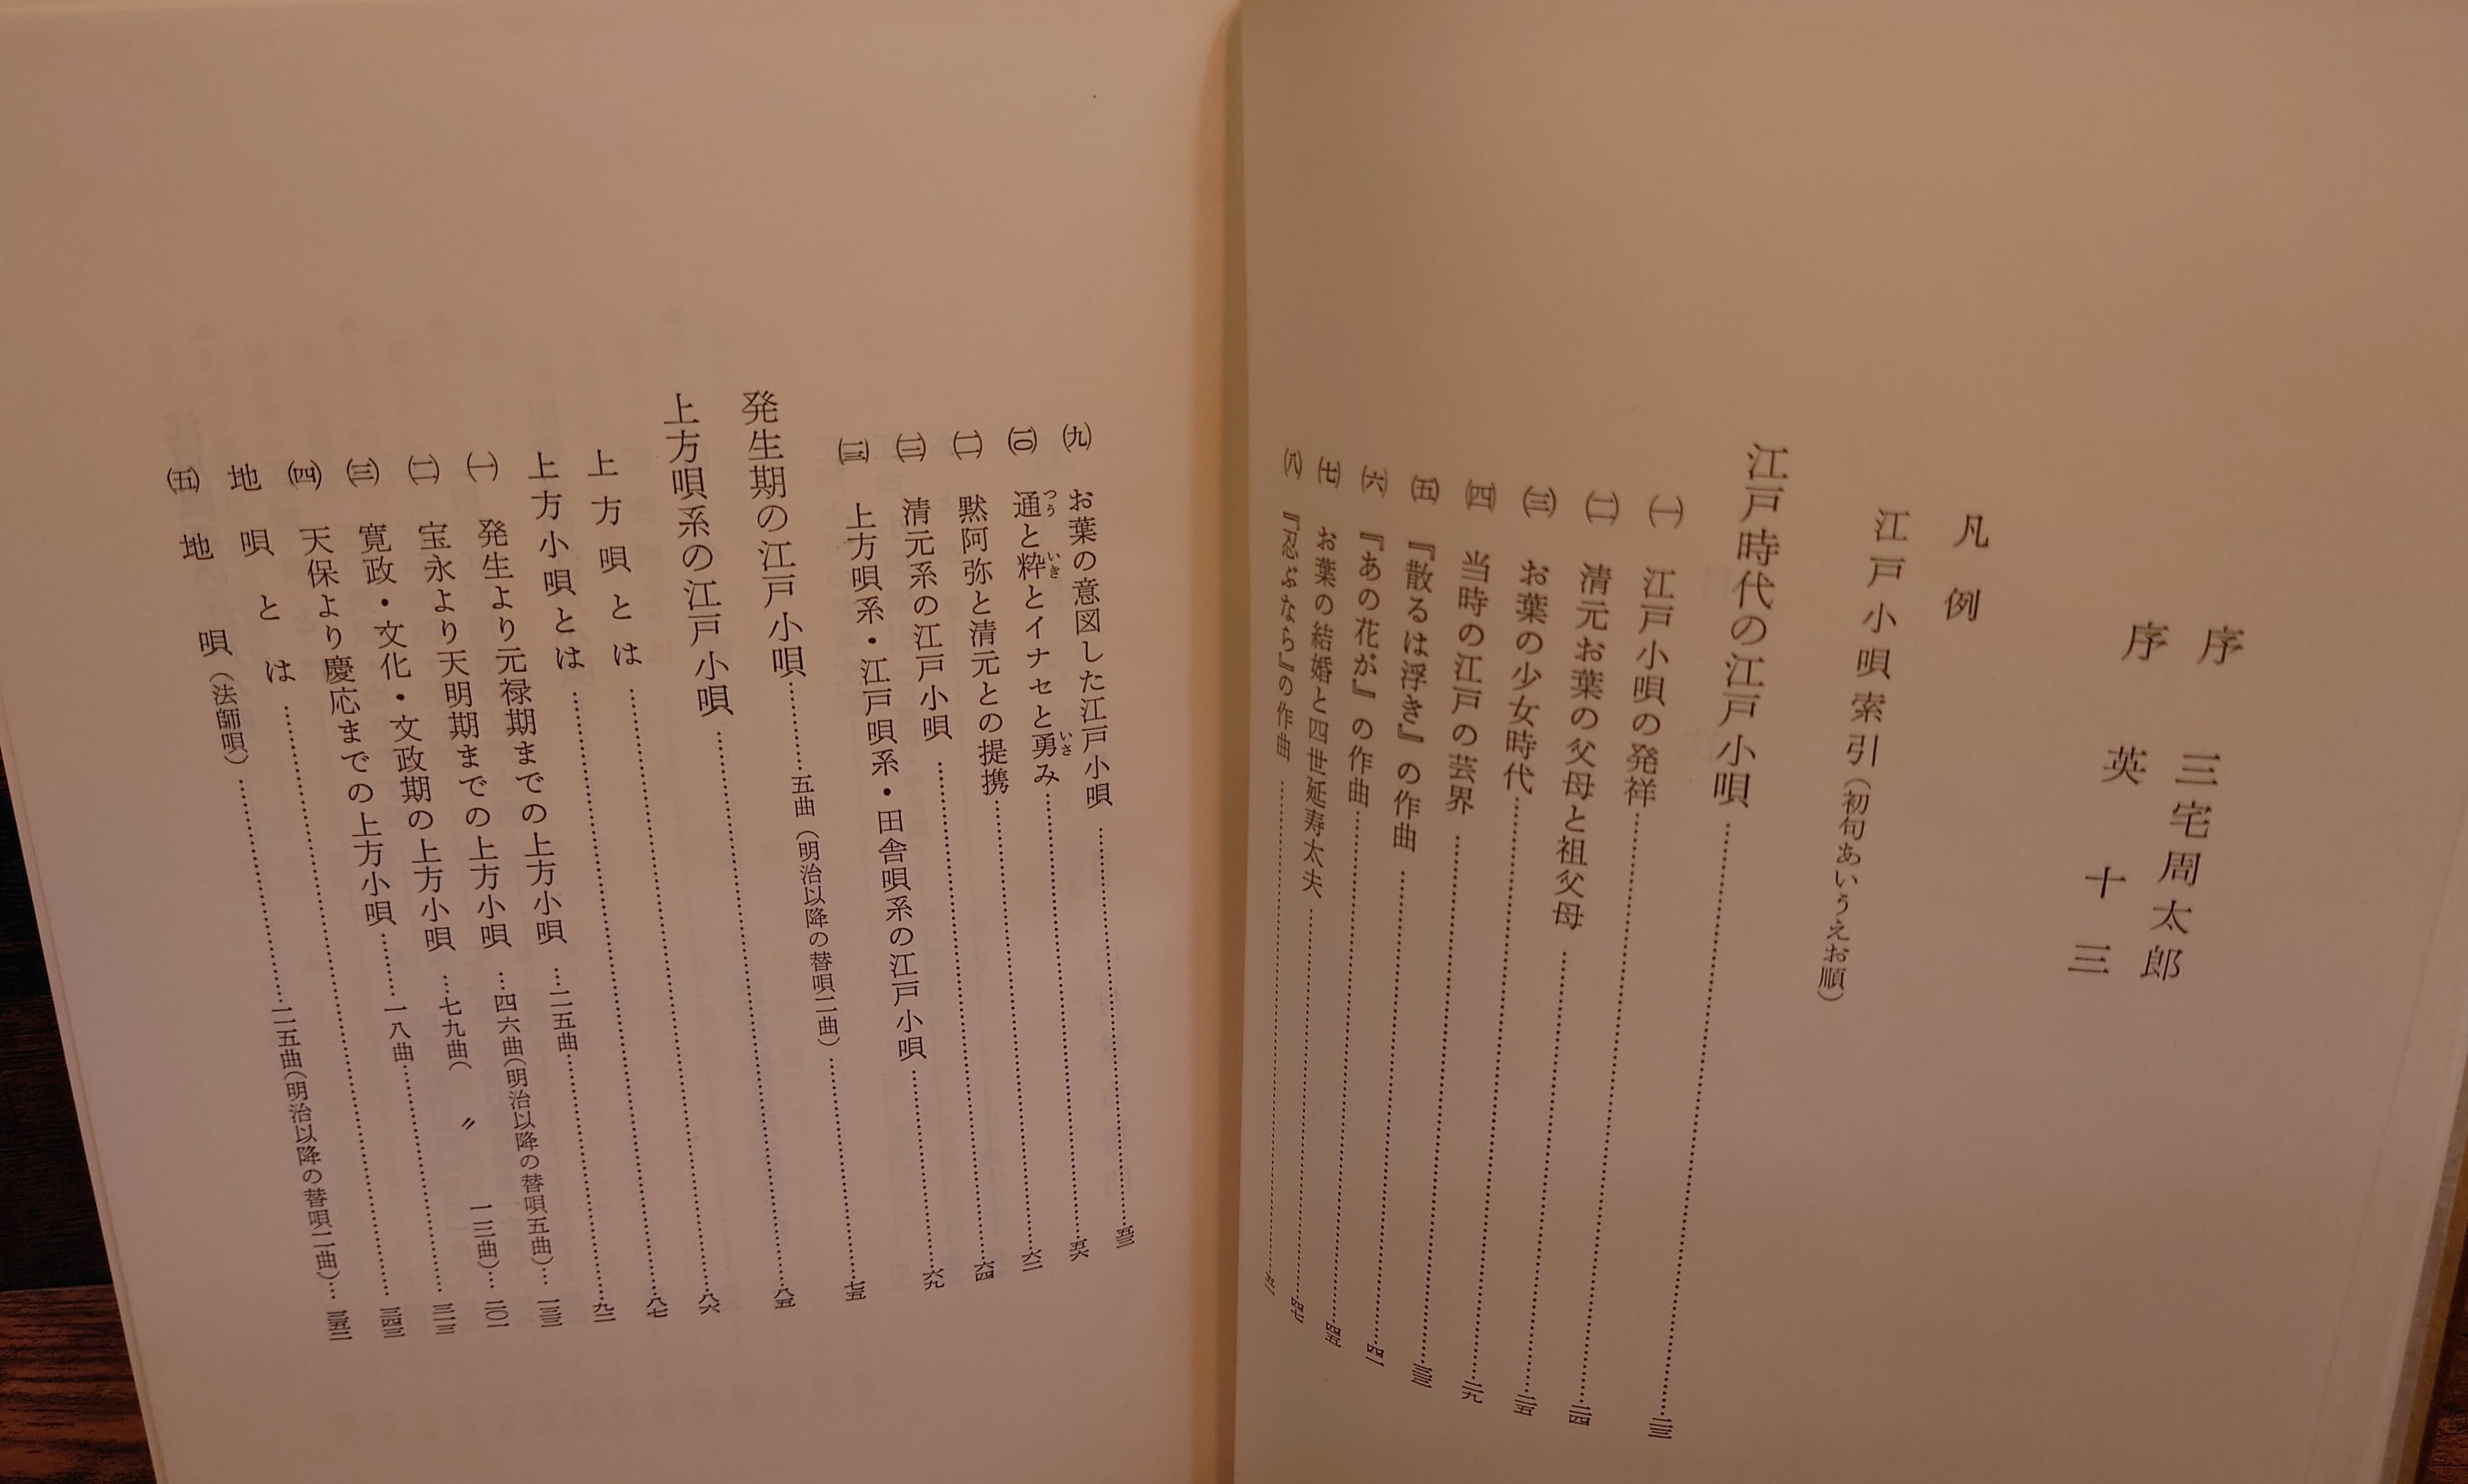 序　三宅周太郎
序　英　十三
凡例
江戸小唄索引（初句あいうえお順）
江戸時代の江戸小唄……二三
㈠　江戸小唄の発祥……二四
㈡　清元お葉の父母と祖父母……二五
㈢　お葉の少女時代……二九
㈣　当時の江戸の芸界……三三
㈤　『散るは浮き』の作曲……四一
㈥　『あの花が』の作曲……四五
㈦　お葉の結婚と四世延寿太夫……四七
㈧　『忍ぶなら』の作曲……五一
㈨　お葉の意図した江戸小唄……五三
つう　いき　いさ
(一〇)　通と粋とイナセと勇み……五六
(一一)　黙阿弥と清元との提携……六二
(一二)　清元系の江戸小唄……六四
(一三)　上方唄系・江戸唄系・田舎唄系の江戸小唄……六九
発生期の江戸小唄……五曲（明治以降の替唄二曲）……七五
上方唄系の江戸小唄……八五
上方唄とは……八六
上方小唄とは……八七
㈠　発生より元禄期までの上方小唄…二五曲……九一
㈡　宝永より天明期までの上方小唄…四六曲（明治以降の替唄五曲）…一三三
㈢　寛政・文化・文政期の上方小唄…七九曲（　〃　一二曲）…二〇一
㈣　天保より慶応までの上方小唄……一八曲……三一三
地唄とは……三四三
㈤　地唄（法師唄）……二五曲（明治以降の替唄二曲）…三五二